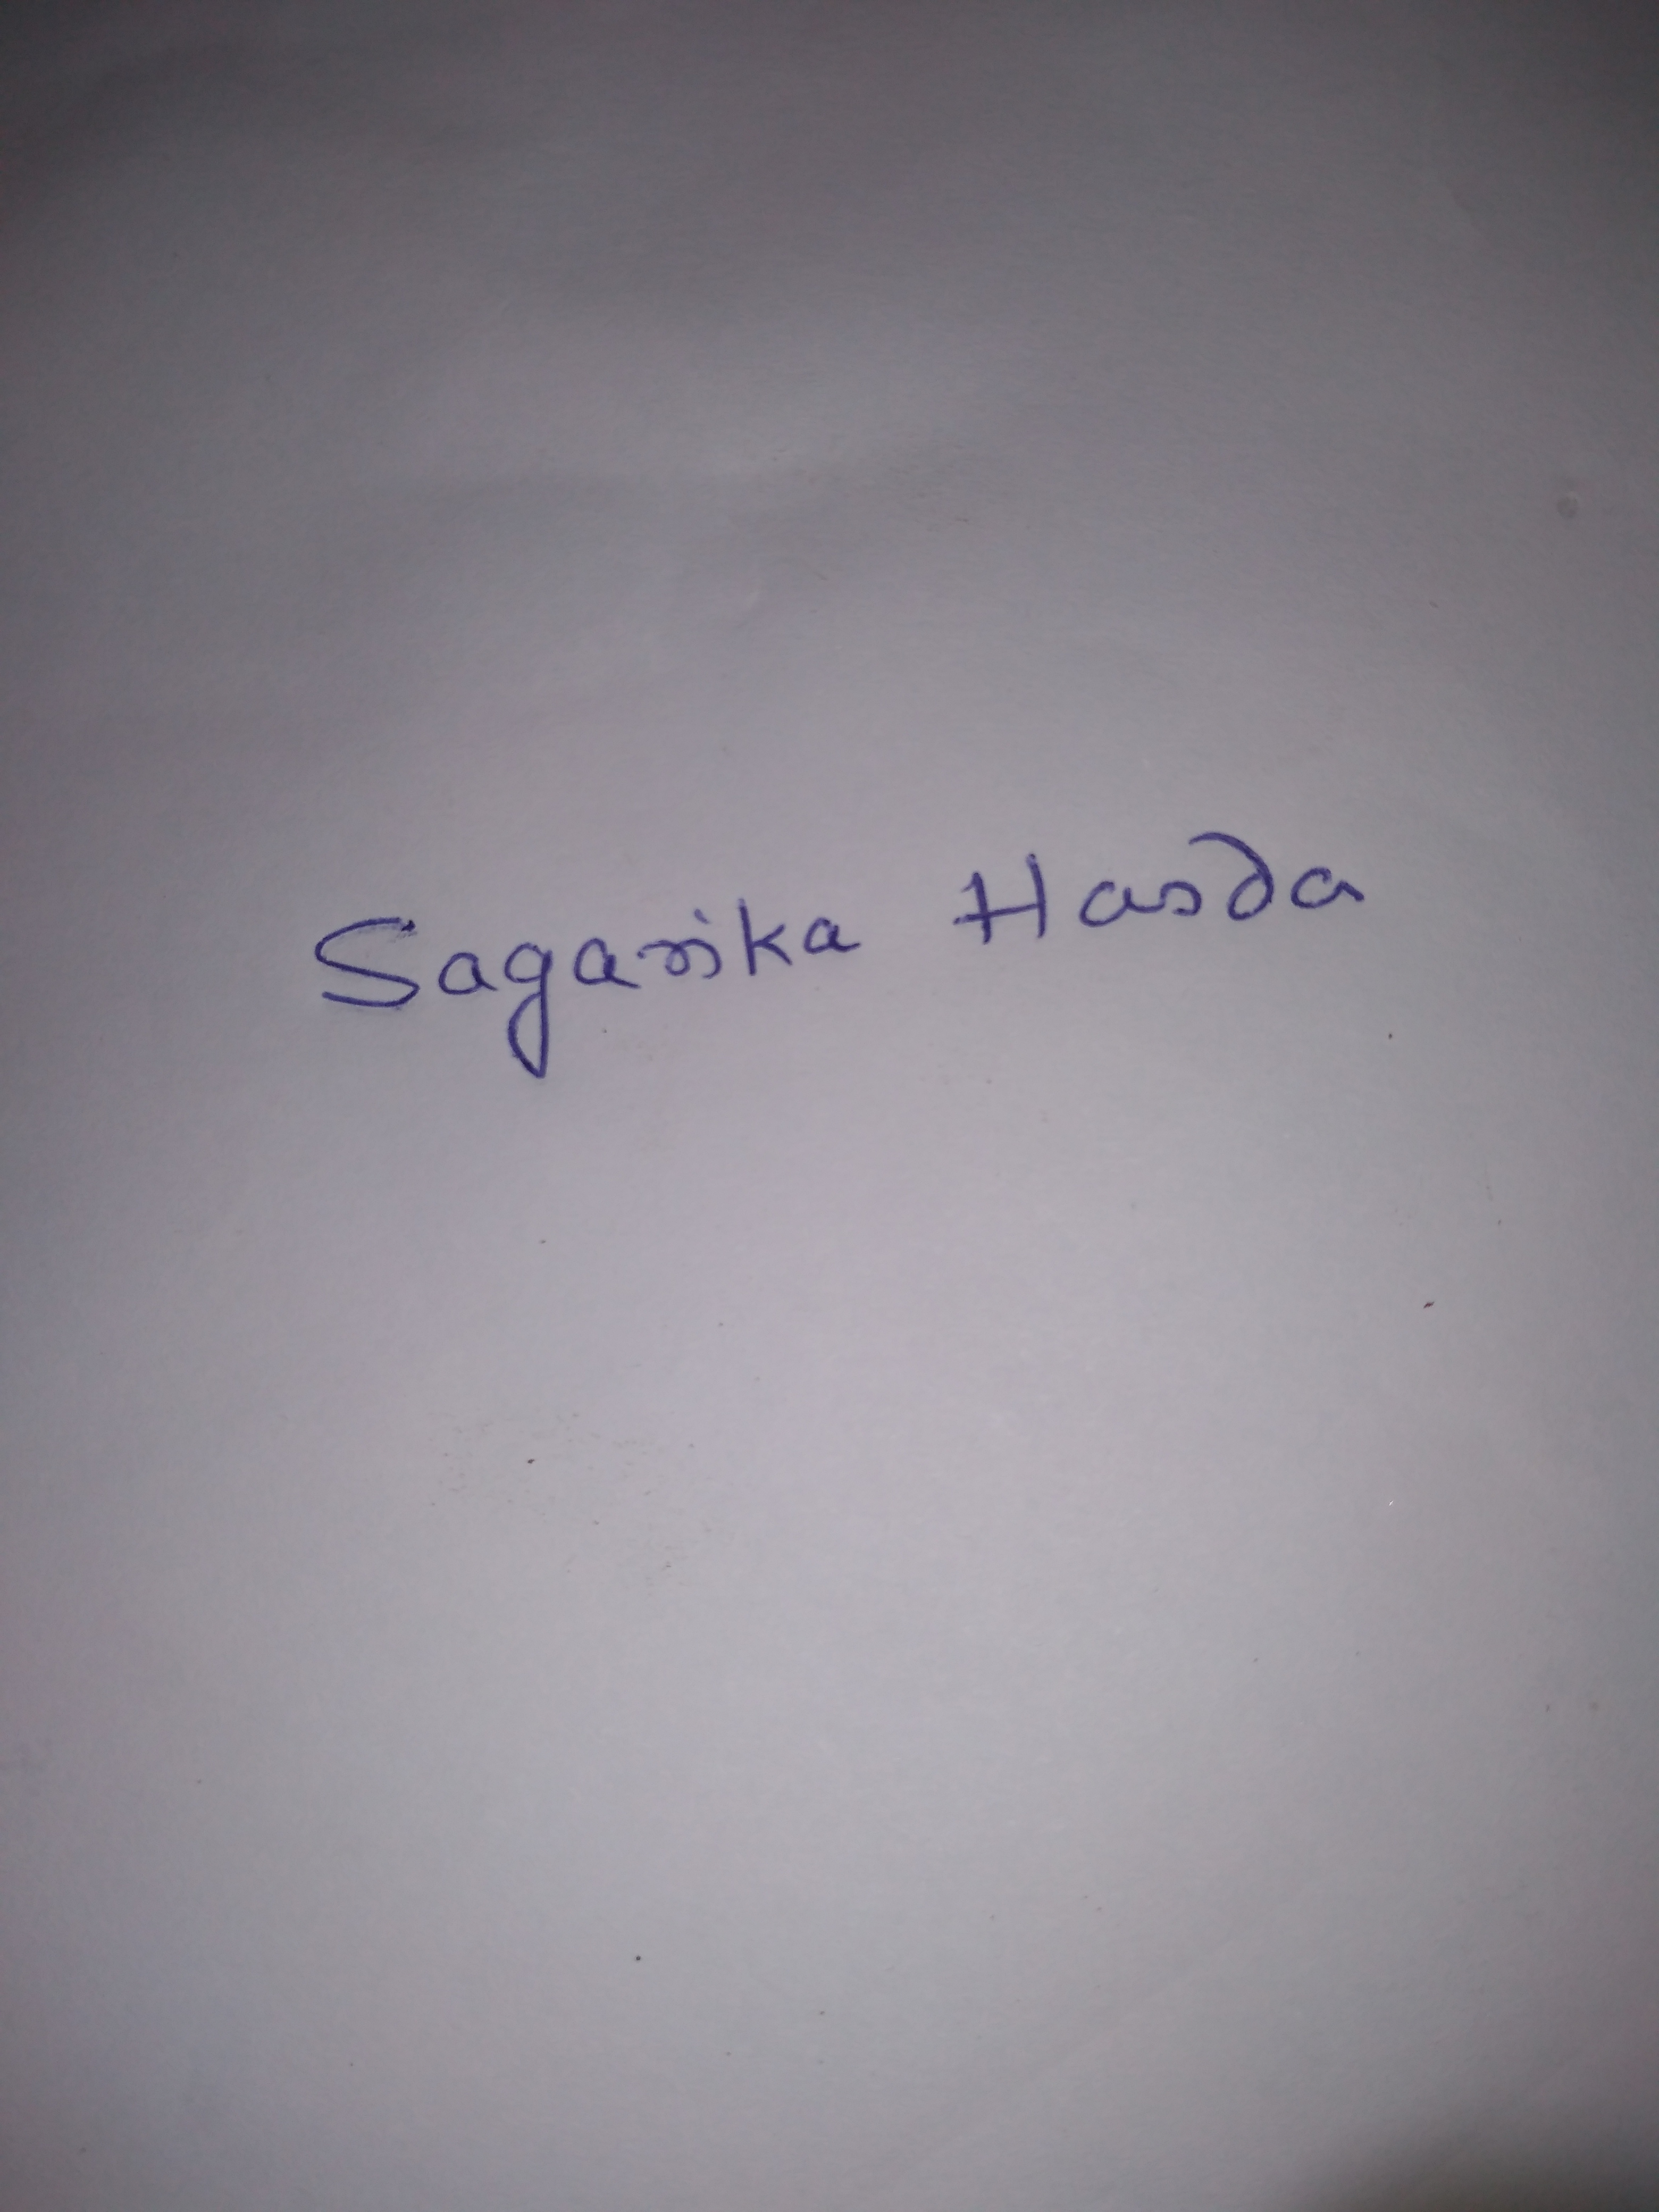 Sagarika Hasda